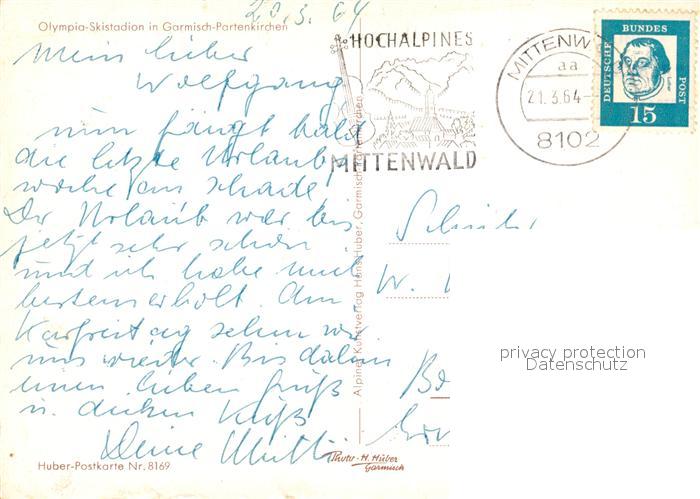 20.3.64
Olympia-Skistadion in Garmisch-Partenkirchen
Mein lieber
Wolfgang
nun fängt bald
die letzte Urlaubs-
woche an schade!
Der Urlaub war bis
jetzt sehr schön
und ich habe mich
bestens erholt. Am
Karfreitag sehen wir
uns wieder. Bis dahin
einen lieben Gruß
u. dicken Kuß
Deine Mutti
Huber-Postkarte Nr. 8169
Alpiner Kunstverlag Hans Huber, Garmisch-Partenkirchen
Photo-H. Huber
Garmisch
HOCHALPINES
MITTENWALD
MITTENW
aa
21.3.64
8102
DEUTSCHE BUNDES POST
Luther
15
Schüler
W.
privacy protection
Datenschutz